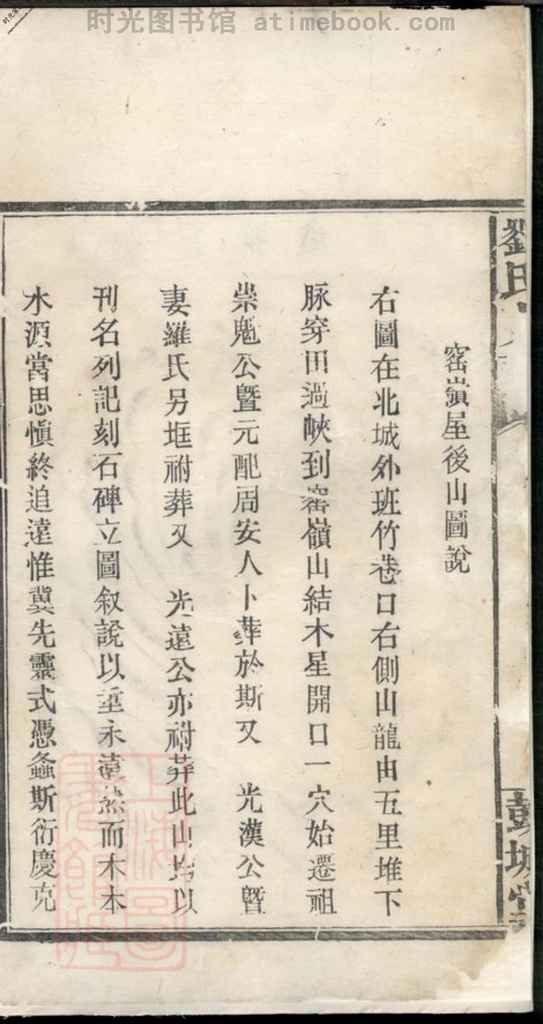 时光图书馆 atimebook.com
劉氏
彭城堂
窑嶺屋後山圖說
右圖在北城外班竹巷口右側山龍由五里堆下
脉穿田過峽到窑嶺山結木星開口一穴始遷祖
崇魁公暨元配周安人卜葬於斯又　光漢公暨
妻羅氏另堆祔葬又　光遠公亦祔葬此山均以
刊名列記刻石碑立圖叙說以垂永遠然而木本
水源當思慎終追遠惟冀先靈式憑螽斯衍慶克